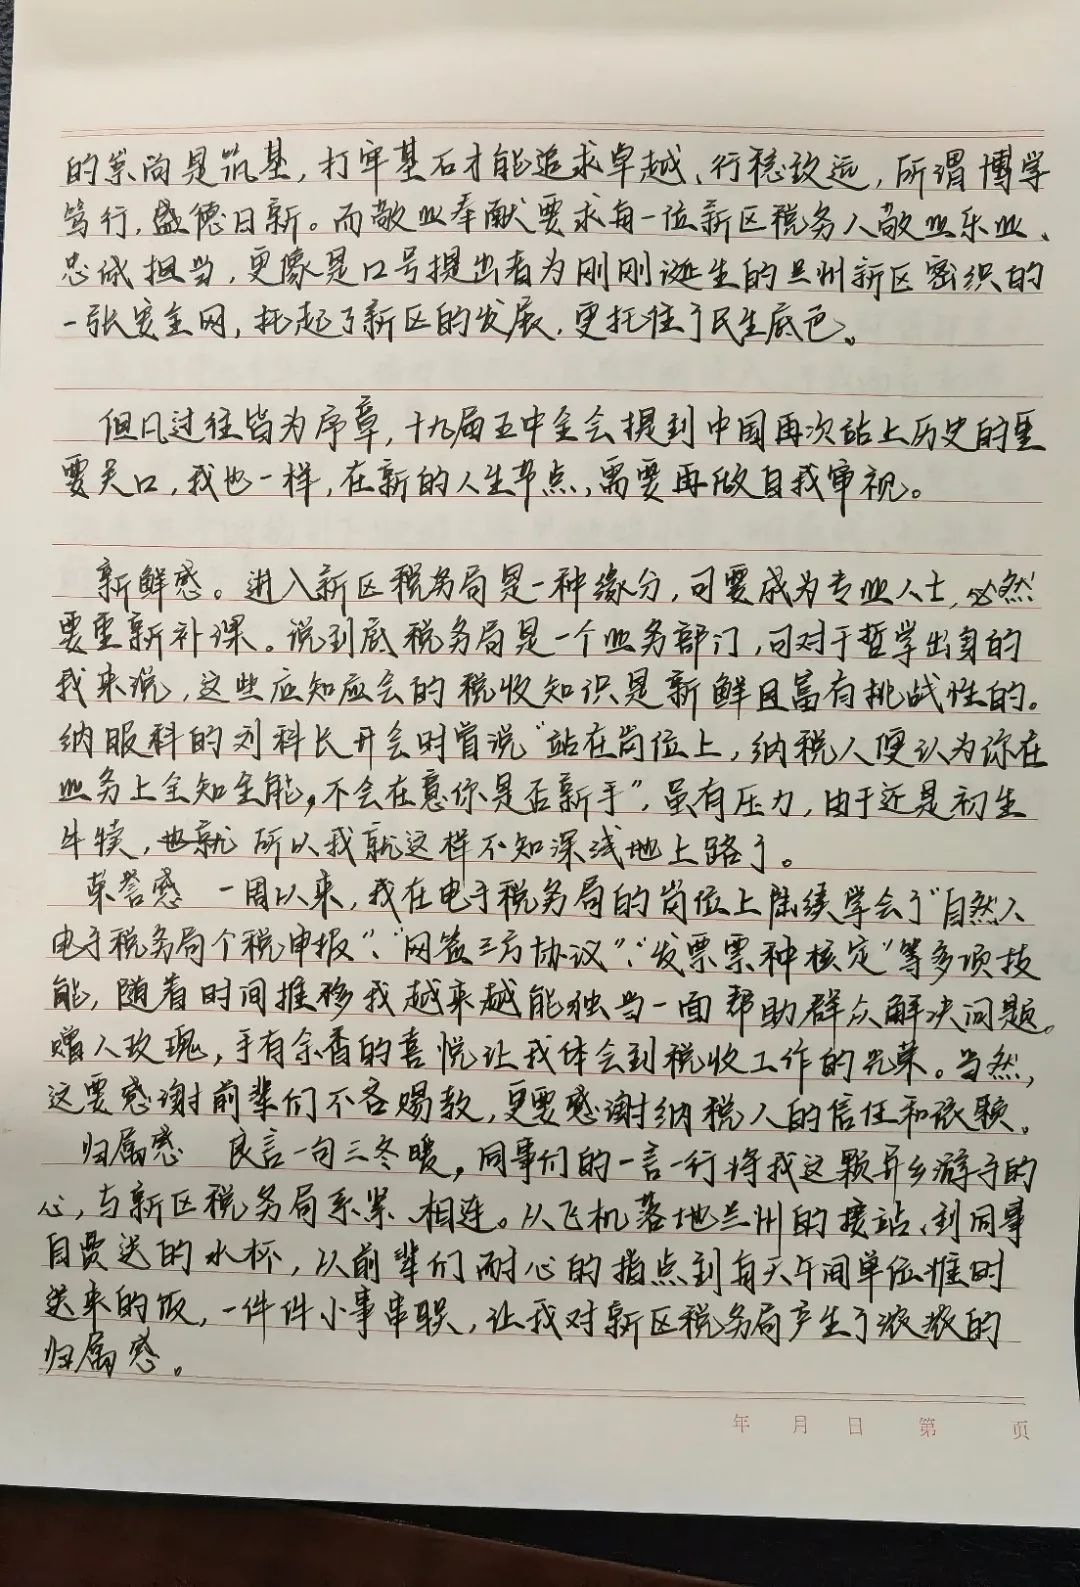 的崇尚是筑基，打牢基石才能追求卓越、行稳致远，所谓博学
笃行，盛德日新。而敬业奉献要求每一位新区税务人敬业乐业、
忠诚担当，更像是口号提出者为刚刚诞生的兰州新区密织的
一张安全网，托起了新区的发展，更托住了民生底色。
但凡过往皆为序章，十九届五中全会提到中国再次站上历史的重
要关口，我也一样，在新的人生节点，需要再做自我审视。
新鲜感。进入新区税务局是一种缘分，可要成为专业人士，必然
要重新补课。说到底税务局是一个业务部门，可对于哲学出身的
我来说，这些应知应会的税收知识是新鲜且富有挑战性的。
纳服科的刘科长开会时曾说“站在岗位上，纳税人便认为你在
业务上全知全能，不会在意你是否新手”，虽有压力，由于近是初生
牛犊，所以我就这样不知深浅地上路了。
荣誉感 一周以来，我在电子税务局的岗位上陆续学会了“自然人
电子税务局个税申报”、“网签三方协议”、“发票票种核定”等多项技
能，随着时间推移我越来越能独当一面帮助群众解决问题。
赠人玫瑰，手有余香的喜悦让我体会到税收工作的光荣。当然，
这要感谢前辈们不吝赐教，更要感谢纳税人的信任和依赖。
归属感 良言一句三冬暖，同事们的一言一行将我这颗异乡游子的
心，与新区税务局系紧、相连。从飞机落地兰州的接站、到同事
自费送的水杯，从前辈们耐心的指点到每天午间单位准时
送来的饭，一件件小事串联，让我对新区税务局产生了浓浓的
归属感。
年 月 日 第 页